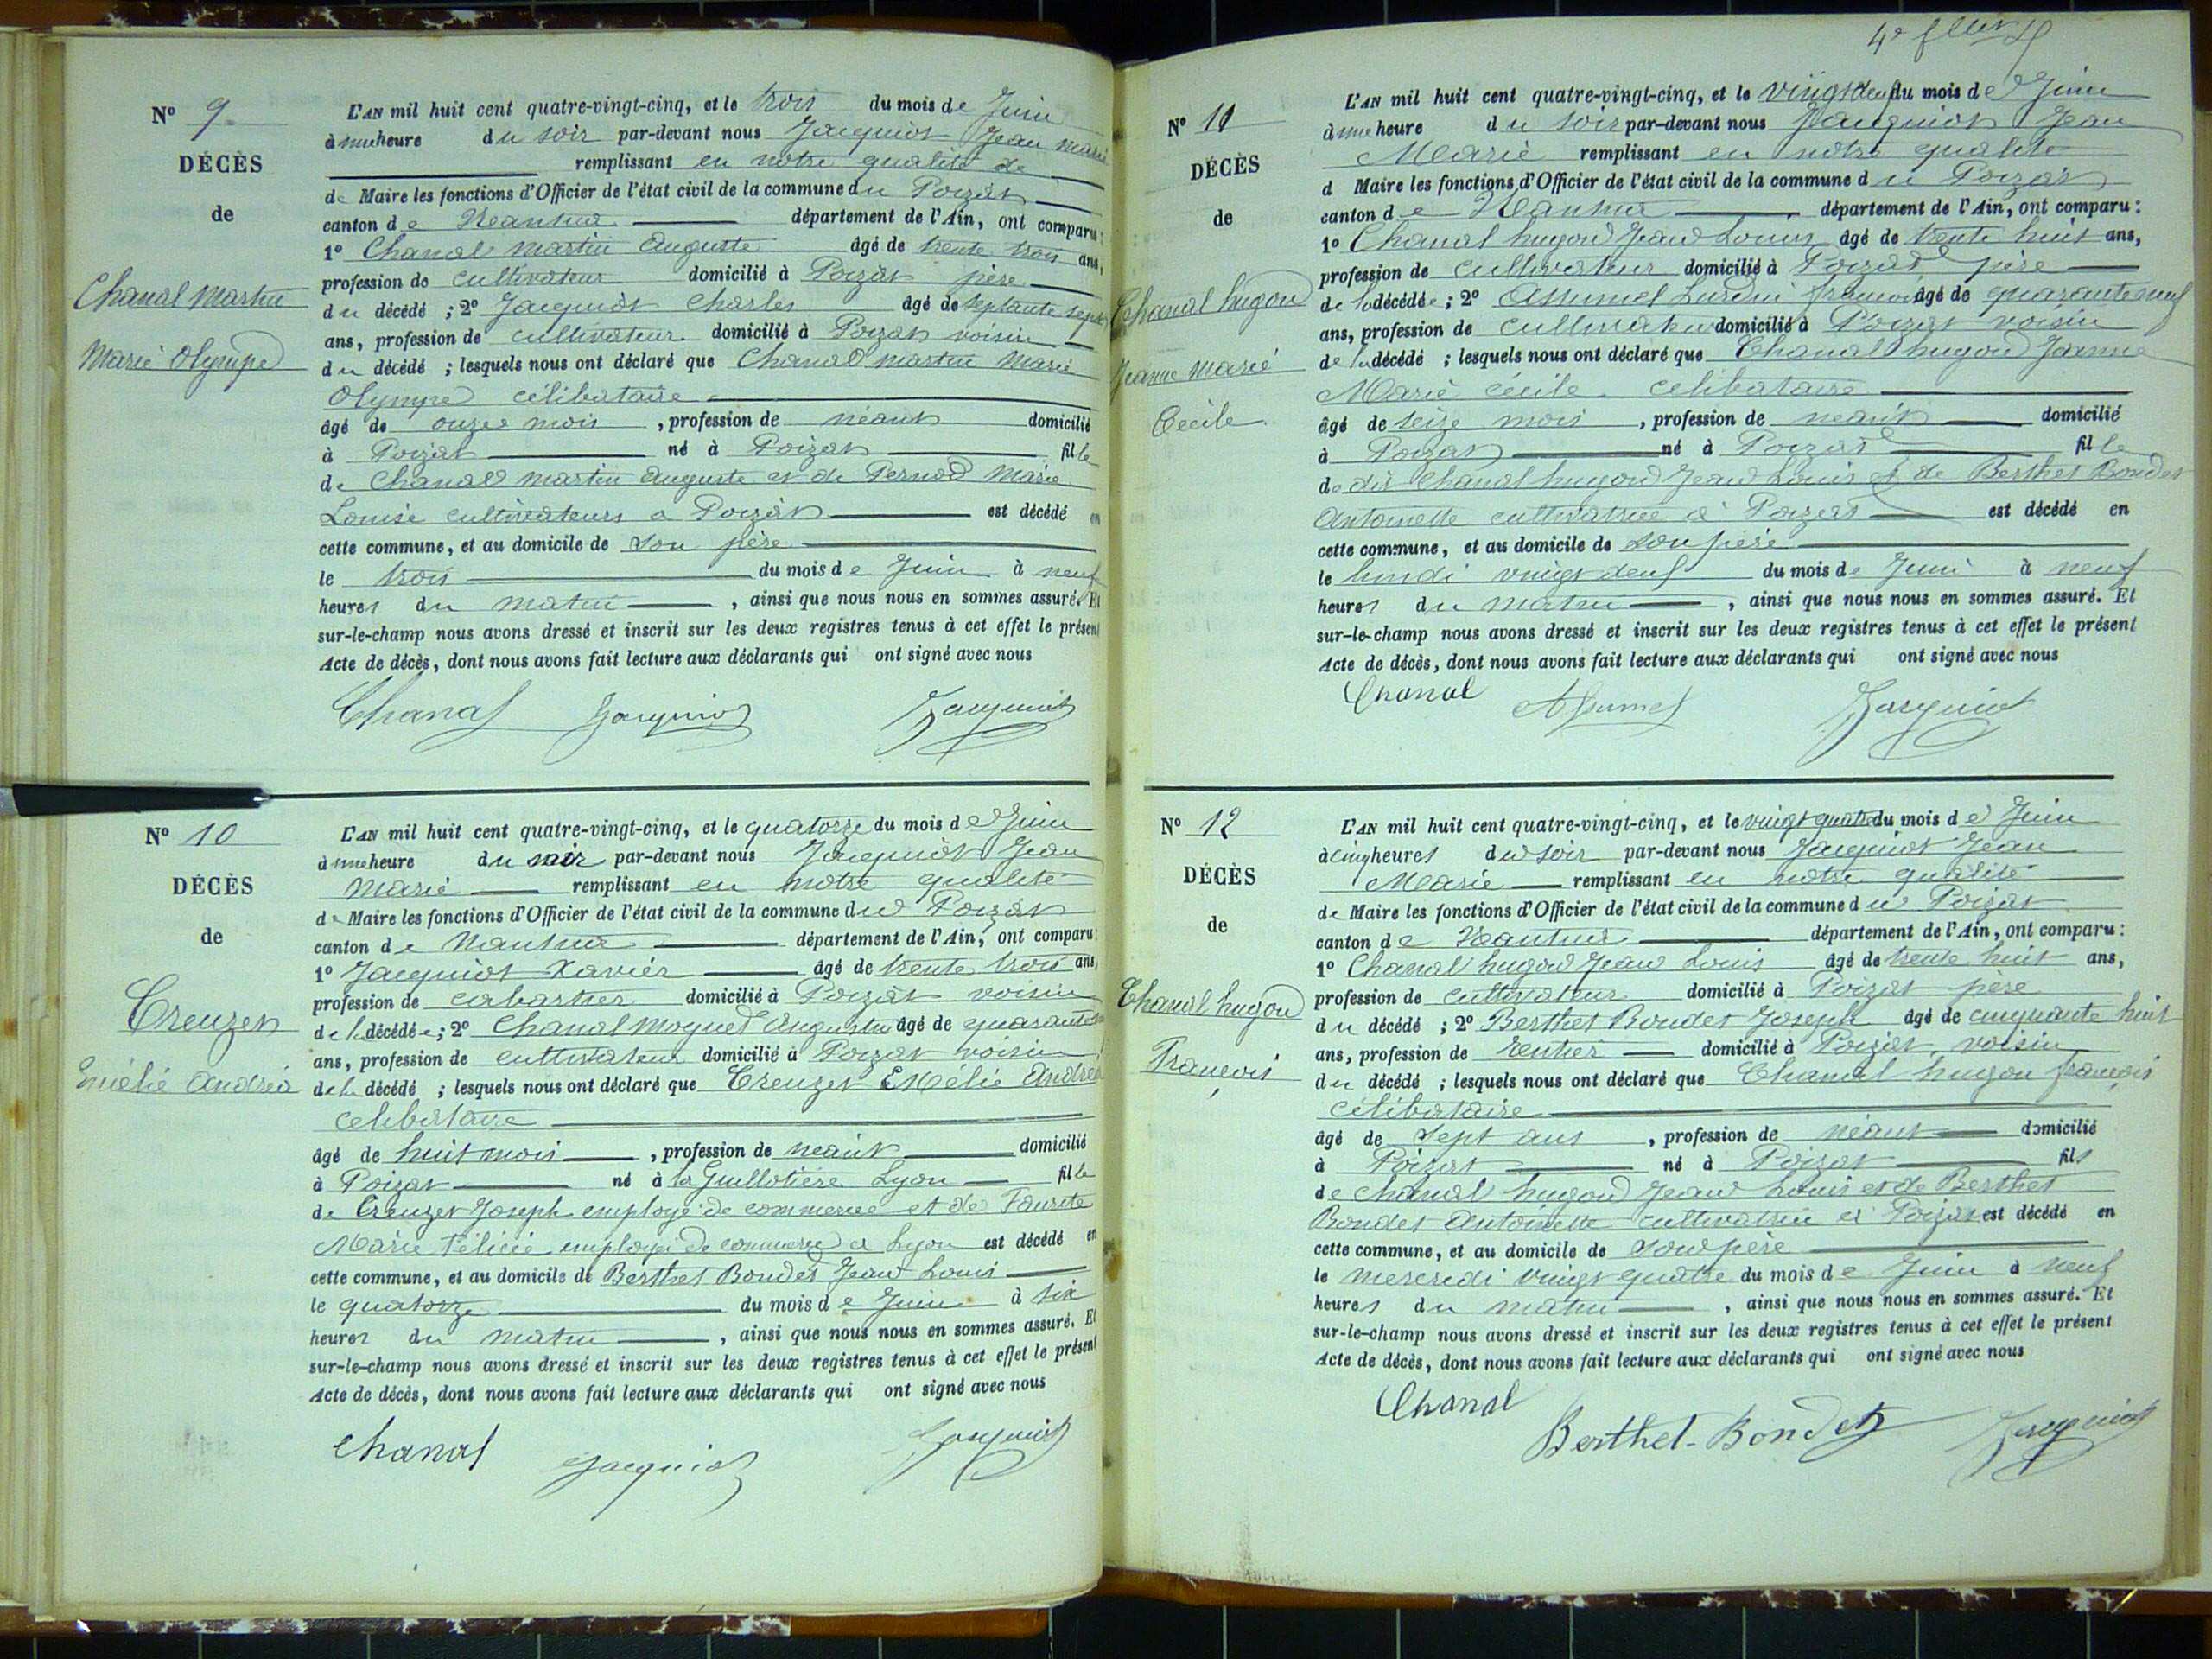 N° 9
DÉCÈS
de
Chanal Martin
Marie Olympe
L'AN mil huit cent quatre-vingt-cinq, et le trois du mois de Juin
à une heure du soir par-devant nous Jacquiot Jean Marie
remplissant en notre qualité de
de Maire les fonctions d'Officier de l'état civil de la commune du Poizat
canton de Nantua département de l'Ain, ont comparu :
1° Chanal Martin Auguste âgé de trente trois ans,
profession de cultivateur domicilié à Poizat père
du décédé ; 2° Jacquiot Charles âgé de septante sept
ans, profession de cultivateur domicilié à Poizat voisin
du décédé ; lesquels nous ont déclaré que Chanal martin Marie
Olympe célibataire
âgé de onze mois , profession de néant domicilié
à Poizat né à Poizat fille
de Chanal martin Auguste et de Pernod Marie
Louise cultivateurs a Poizat est décédé en
cette commune, et au domicile de son père
le trois du mois de Juin à neuf
heures du matin , ainsi que nous nous en sommes assuré. Et
sur-le-champ nous avons dressé et inscrit sur les deux registres tenus à cet effet le présent
Acte de décès, dont nous avons fait lecture aux déclarants qui ont signé avec nous
Chanal Jacquiot Jacquiot
N° 10
DÉCÈS
de
Creuzet
Emélie Andréa
L'AN mil huit cent quatre-vingt-cinq, et le quatorze du mois de Juin
à une heure du soir par-devant nous Jacquiot Jean
Marie remplissant en notre qualité
de Maire les fonctions d'Officier de l'état civil de la commune du Poizat
canton de Nantua département de l'Ain, ont comparu :
1° Jacquiot Xavier âgé de trente trois ans,
profession de cabartier domicilié à Poizat voisin
de la décédée ; 2° Chanal Moquet Augustin âgé de quarante
ans, profession de cultivateur domicilié à Poizat voisin
de la décédé ; lesquels nous ont déclaré que Creuzet Emélie Andréa
celibataire
âgé de huit mois , profession de neant domicilié
à Poizat né à la Guillotière Lyon fille
de Creuzet Joseph employé de commerce et de Faurite
Marie Félicie employée de commerce a Lyon est décédé en
cette commune, et au domicile de Berthet Bondet Jean Louis
le quatorze du mois de Juin à six
heures du matin , ainsi que nous nous en sommes assuré. Et
sur-le-champ nous avons dressé et inscrit sur les deux registres tenus à cet effet le présent
Acte de décès, dont nous avons fait lecture aux déclarants qui ont signé avec nous
Chanal Jacquiot Jacquiot
N° 11
DÉCÈS
de
Chanal hugon
Jeanne Marie
Cécile
L'AN mil huit cent quatre-vingt-cinq, et le vingt deux du mois de Juin
à une heure du soir par-devant nous Jacquiot Jean
Marie remplissant en notre qualité
d Maire les fonctions d'Officier de l'état civil de la commune du Poizat
canton de Nantua département de l'Ain, ont comparu :
1° Chanal hugon Jean Louis âgé de trente huit ans,
profession de cultivateur domicilié à Poizat père
de la décédée ; 2° Assumel françois âgé de quarante neuf
ans, profession de cultivateur domicilié à Poizat voisin
de la décédé ; lesquels nous ont déclaré que Chanal hugon Jeanne
Marie cécile célibataire
âgé de seize mois , profession de neant domicilié
à Poizat né à Poizat fille
de dit Chanal hugon Jean Louis et de Berthet Bondet
Antoinette cultivatrice à Poizat est décédé en
cette commune, et au domicile de son père
le lundi vingt deux du mois de Juin à neuf
heures du matin , ainsi que nous nous en sommes assuré. Et
sur-le-champ nous avons dressé et inscrit sur les deux registres tenus à cet effet le présent
Acte de décès, dont nous avons fait lecture aux déclarants qui ont signé avec nous
Chanal Assumel Jacquiot
N° 12
DÉCÈS
de
Chanal hugon
François
L'AN mil huit cent quatre-vingt-cinq, et le vingt quatre du mois de Juin
à cinq heures du soir par-devant nous Jacquiot Jean
Marie remplissant en notre qualité
de Maire les fonctions d'Officier de l'état civil de la commune du Poizat
canton de Nantua département de l'Ain, ont comparu :
1° Chanal hugon Jean Louis âgé de trente huit ans,
profession de cultivateur domicilié à Poizat père
du décédé ; 2° Berthet Bondet Joseph âgé de cinquante huit
ans, profession de rentier domicilié à Poizat voisin
du décédé ; lesquels nous ont déclaré que Chanal hugon françois
célibataire
âgé de sept ans , profession de néant domicilié
à Poizat né à Poizat fils
de Chanal hugon Jean Louis et de Berthet
Bondet Antoinette cultivatrice à Poizat est décédé en
cette commune, et au domicile de son père
le mercredi vingt quatre du mois de Juin à neuf
heures du matin , ainsi que nous nous en sommes assuré. Et
sur-le-champ nous avons dressé et inscrit sur les deux registres tenus à cet effet le présent
Acte de décès, dont nous avons fait lecture aux déclarants qui ont signé avec nous
Chanal Berthet-Bondet Jacquiot